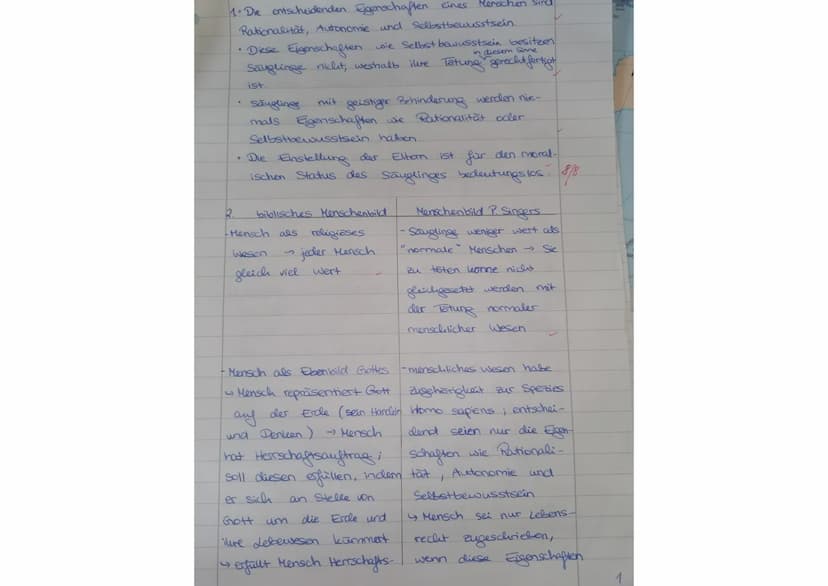 1. Die entscheidenden Eigenschaften eines Menschen sind
Rationalität, Autonomie und Selbstbewusstsein
• Diese Eigenschaften wie Selbstbewusstsein besitzen
in diesem Sinne
Säuglinge nicht, weshalb ihre Tötung gerechtfertigt
ist
• Säuglinge mit geistiger Behinderung werden nie-
mals Eigenschaften wie Rationalität oder
Selbstbewusstsein haben
• Die Einstellung der Eltern ist für den moral-
ischen Status des Säuglinges bedeutungslos. 8/8
2. biblisches Menschenbild
- Mensch als religiöses
Wesen → jeder Mensch
gleich viel wert
- Mensch als Ebenbild Gottes
↳ Mensch repräsentiert Gott
auf der Erde (sein Handeln
und Denken) → Mensch
hat Herrschaftsauftrag;
soll diesen erfüllen, indem
er sich an Stelle von
Gott um die Erde und
ihre Lebewesen kümmert
↳ erfüllt Mensch Herrschafts-
Menschenbild P. Singers
- Säuglinge weniger wert als
"normale" Menschen → Sie
zu töten könne nicht
gleichgesetzt werden mit
der Tötung normaler
menschlicher Wesen
- menschliches Wesen habe
Zugehörigkeit zur Spezies
Homo sapiens, entschei-
dend seien nur die Eigen-
schaften wie Rationali-
tät, Autonomie und
Selbstbewusstsein
↳ Mensch sei nur Lebens-
recht zugeschrieben,
wenn diese Eigenschaften
1